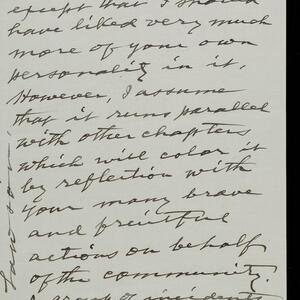 except that I should
have liked very much
more of your own
personality in it.
However, I assume
that it runs parallel
with other chapters
which will color it
by reflection with
your many brave
and fruitful
actions on behalf
of the community.
A group of incidents